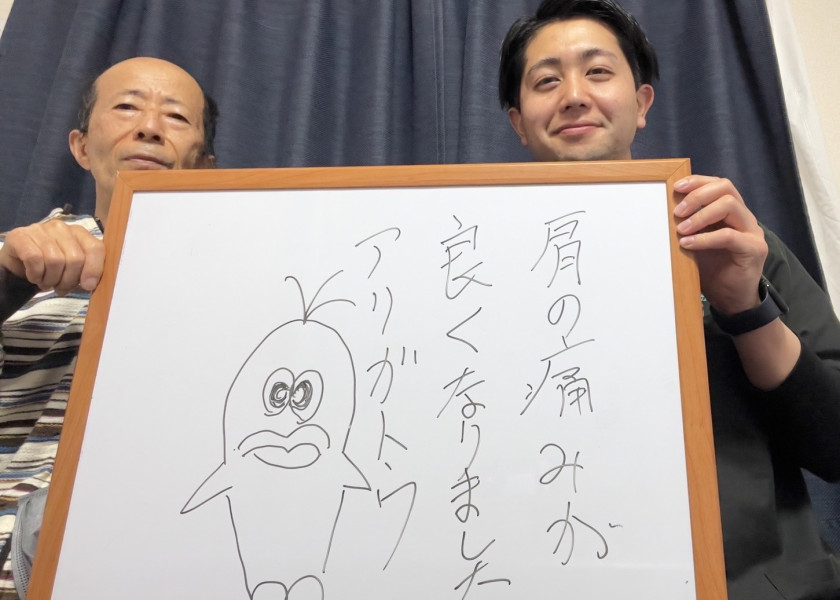 肩の痛みが
良くなりました
アリガトウ